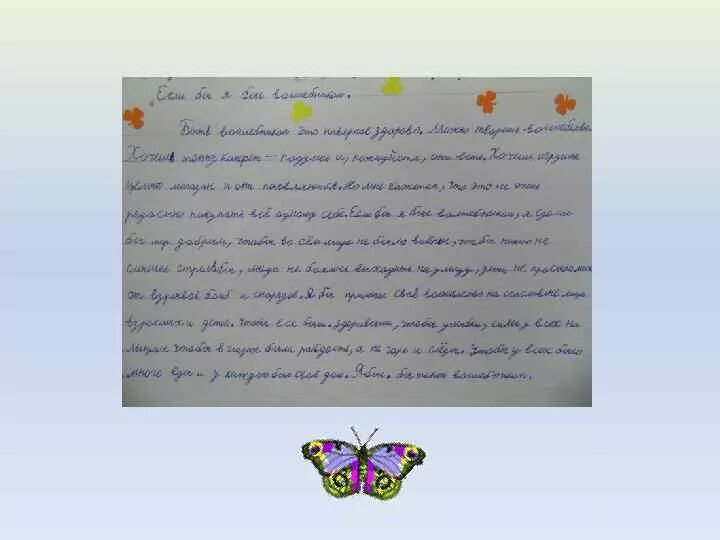 „Если бы я был волшебником.
Быть волшебником это наверное здорово. Можно творить волшебство.
Хочешь конфет — подумал и, пожалуйста, они есть. Хочешь игрушек
целый магазин и они появляются. Но мне кажется, что это не очень
радостно покупать всё одному себе. Если бы я был волшебником, я сделал
бы мир добрым, чтобы во сём мире не было войны, чтобы никто не
слышал стрельбы, люди не боялись выходить на улицу, дети не просыпались
от взрывов бомб и снарядов. Я бы принёс своё волшебство на счастье
взрослых и детей. Чтобы все были здоровыми, чтобы улыбки, сияли у всех на
лицах чтобы в глазах была радость, а не горе и слёзы. Чтобы у всех было
много еды и у каждого был свой дом. Я бы. был таким волшебником.